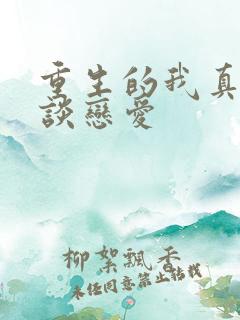 重生的我真
談戀愛
柳絮飄香
未任同意禁止轉載